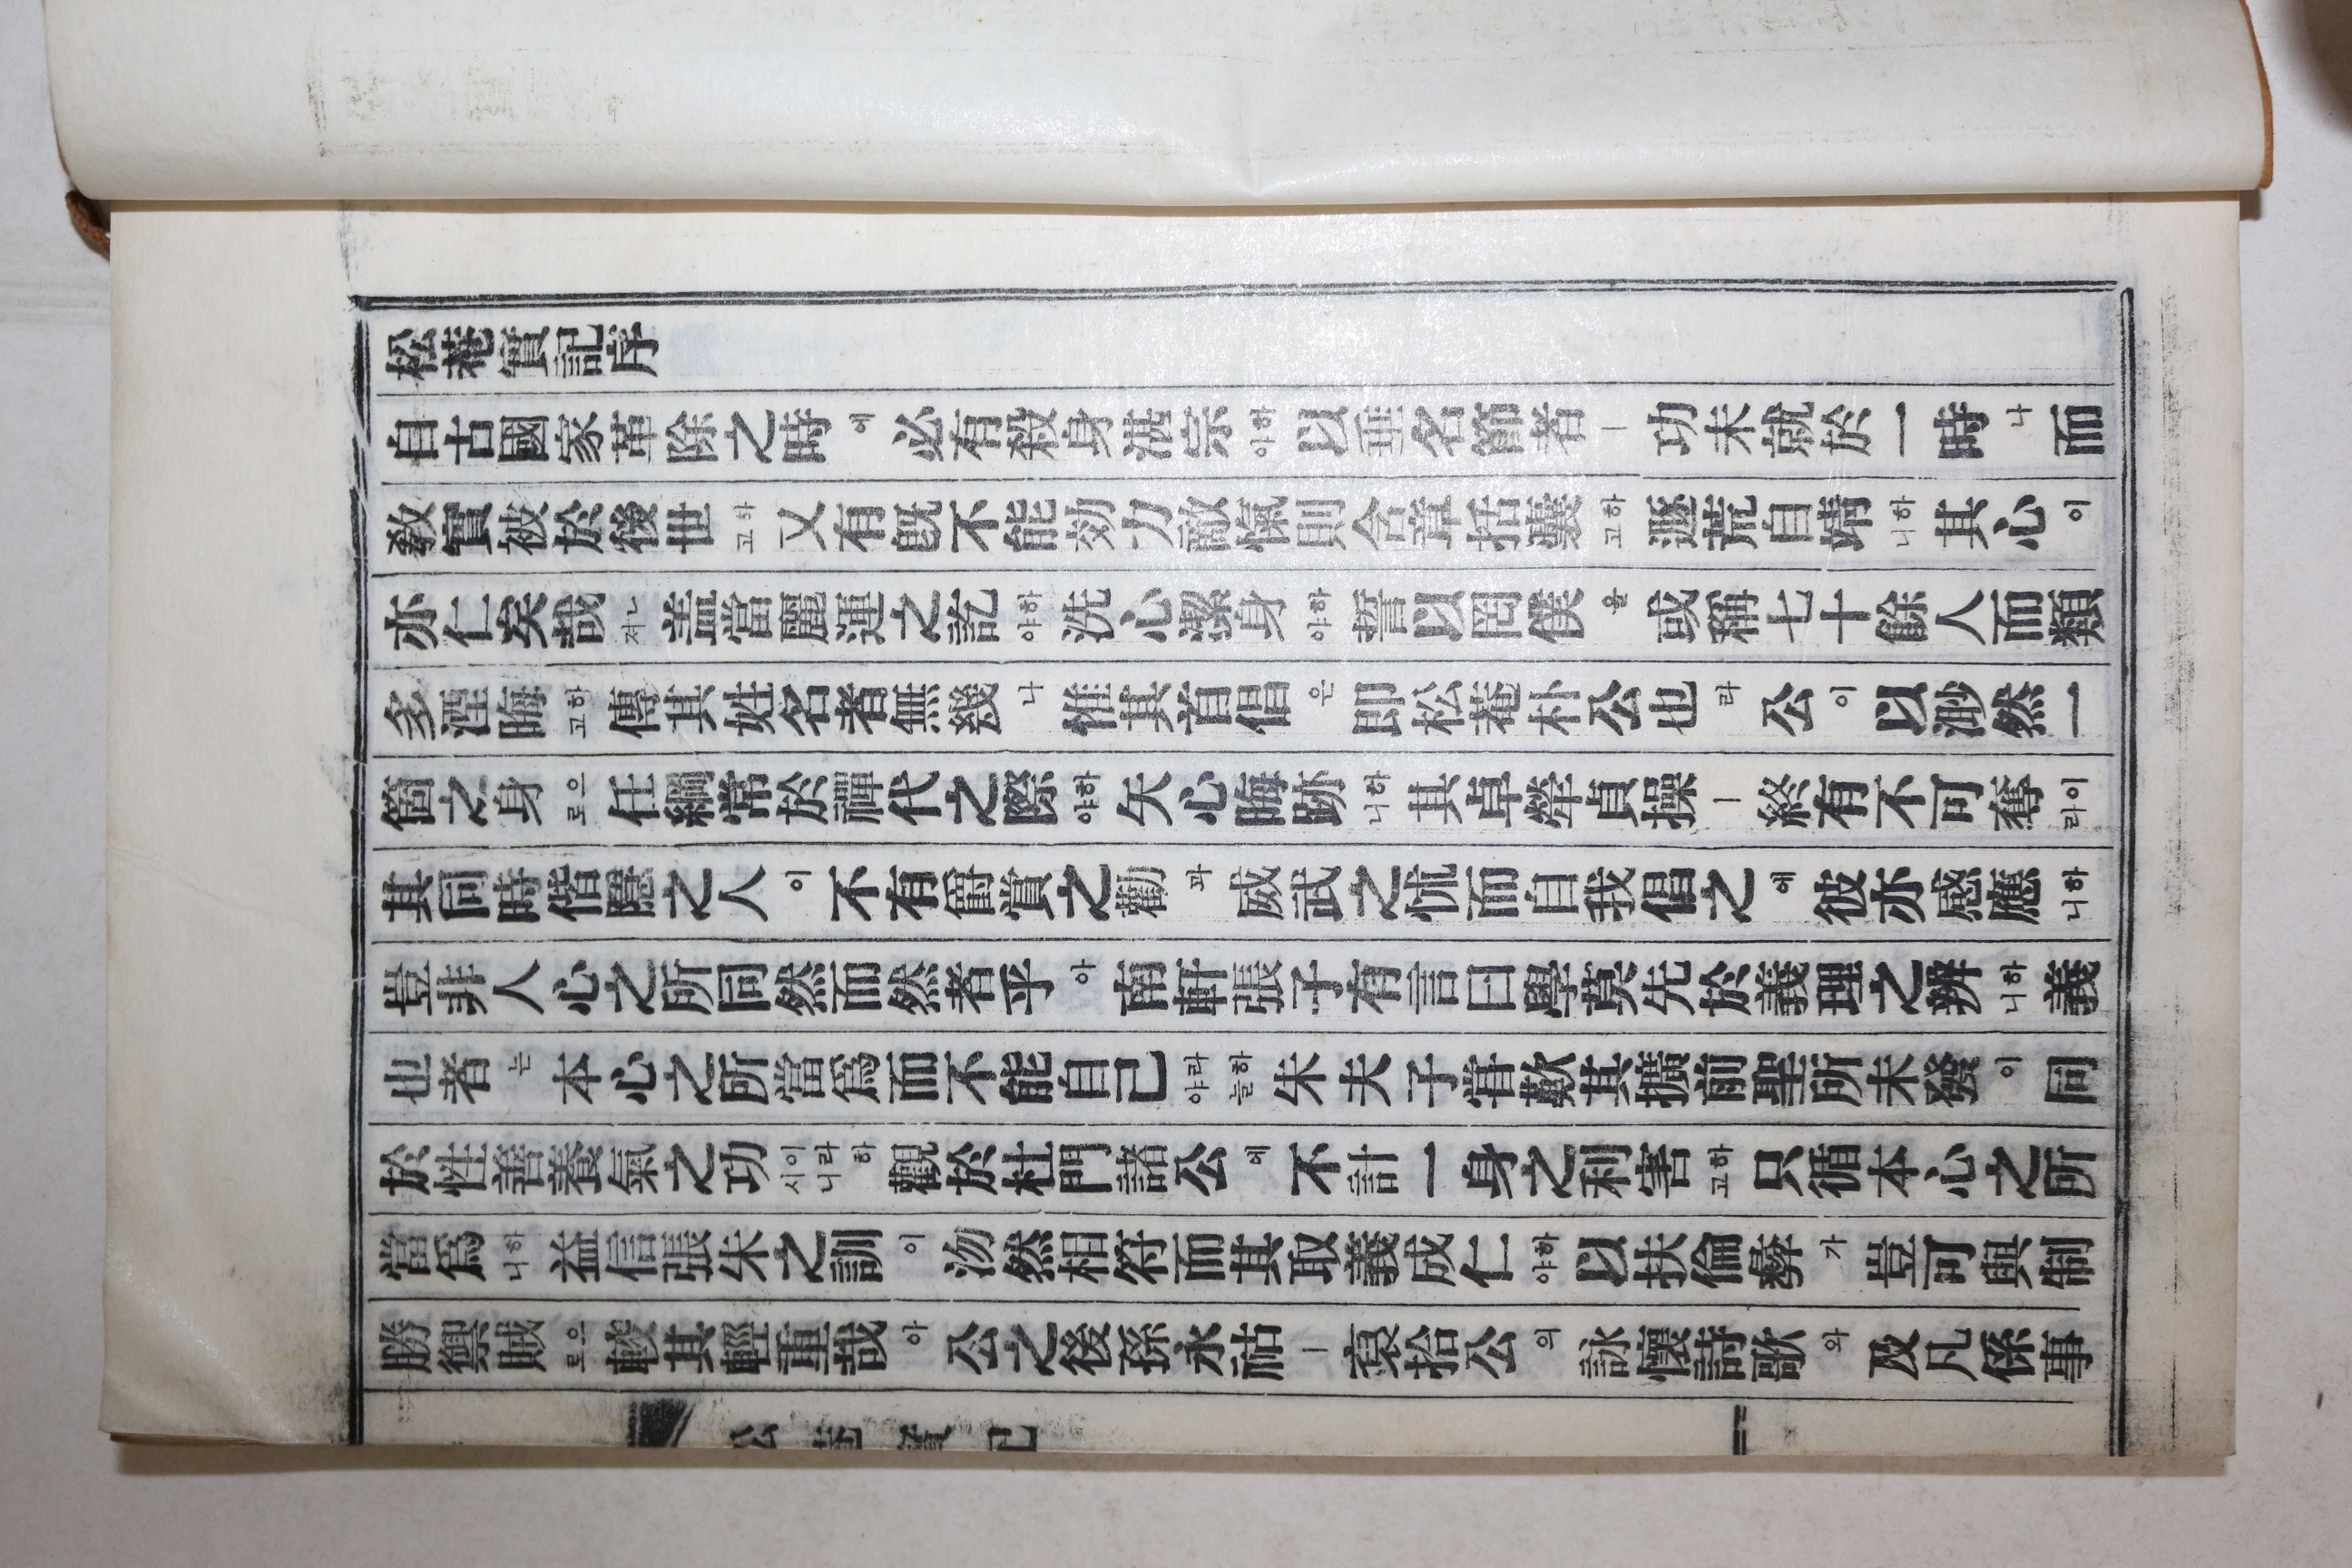 松菴實記序
自古國家革除之時에必有殺身湛宗하야以垂名節者ㅣ功未就於一時나而
敎實被於後世하고又有旣不能效力敵愾則含章括囊하고遯荒自靖하니其心이
亦仁矣哉ㄴ저盖當麗運之訖하야洗心潔身하야誓以罔僕을或稱七十餘人而類
多湮晦하고傳其姓名者無幾나惟其首倡은卽松菴朴公也라公이以渺然一
箇之身으로任綱常於禪代之際하야矢心晦跡하니其卓犖貞操ㅣ終有不可奪이라
其同時偕隱之人이不有爵賞之勸과威武之怵而自我倡之에彼亦感應하니
豈非人心之所同然而然者乎아南軒張子有言曰學莫先於義理之辨하니義
也者는本心之所當爲而不能自已라야하늘朱夫子嘗歎其擴前聖所未發이同
於性善養氣之功이시라니하觀於杜門諸公에不計一身之利害하고只循本心之所
當爲하니益信張朱之訓이沕然相符而其取義成仁하야以扶倫彝가豈可與制
勝禦賊으로較其輕重哉아公之後孫永祜ㅣ裒拾公의詠懷詩歌와及凡係事
松菴實記